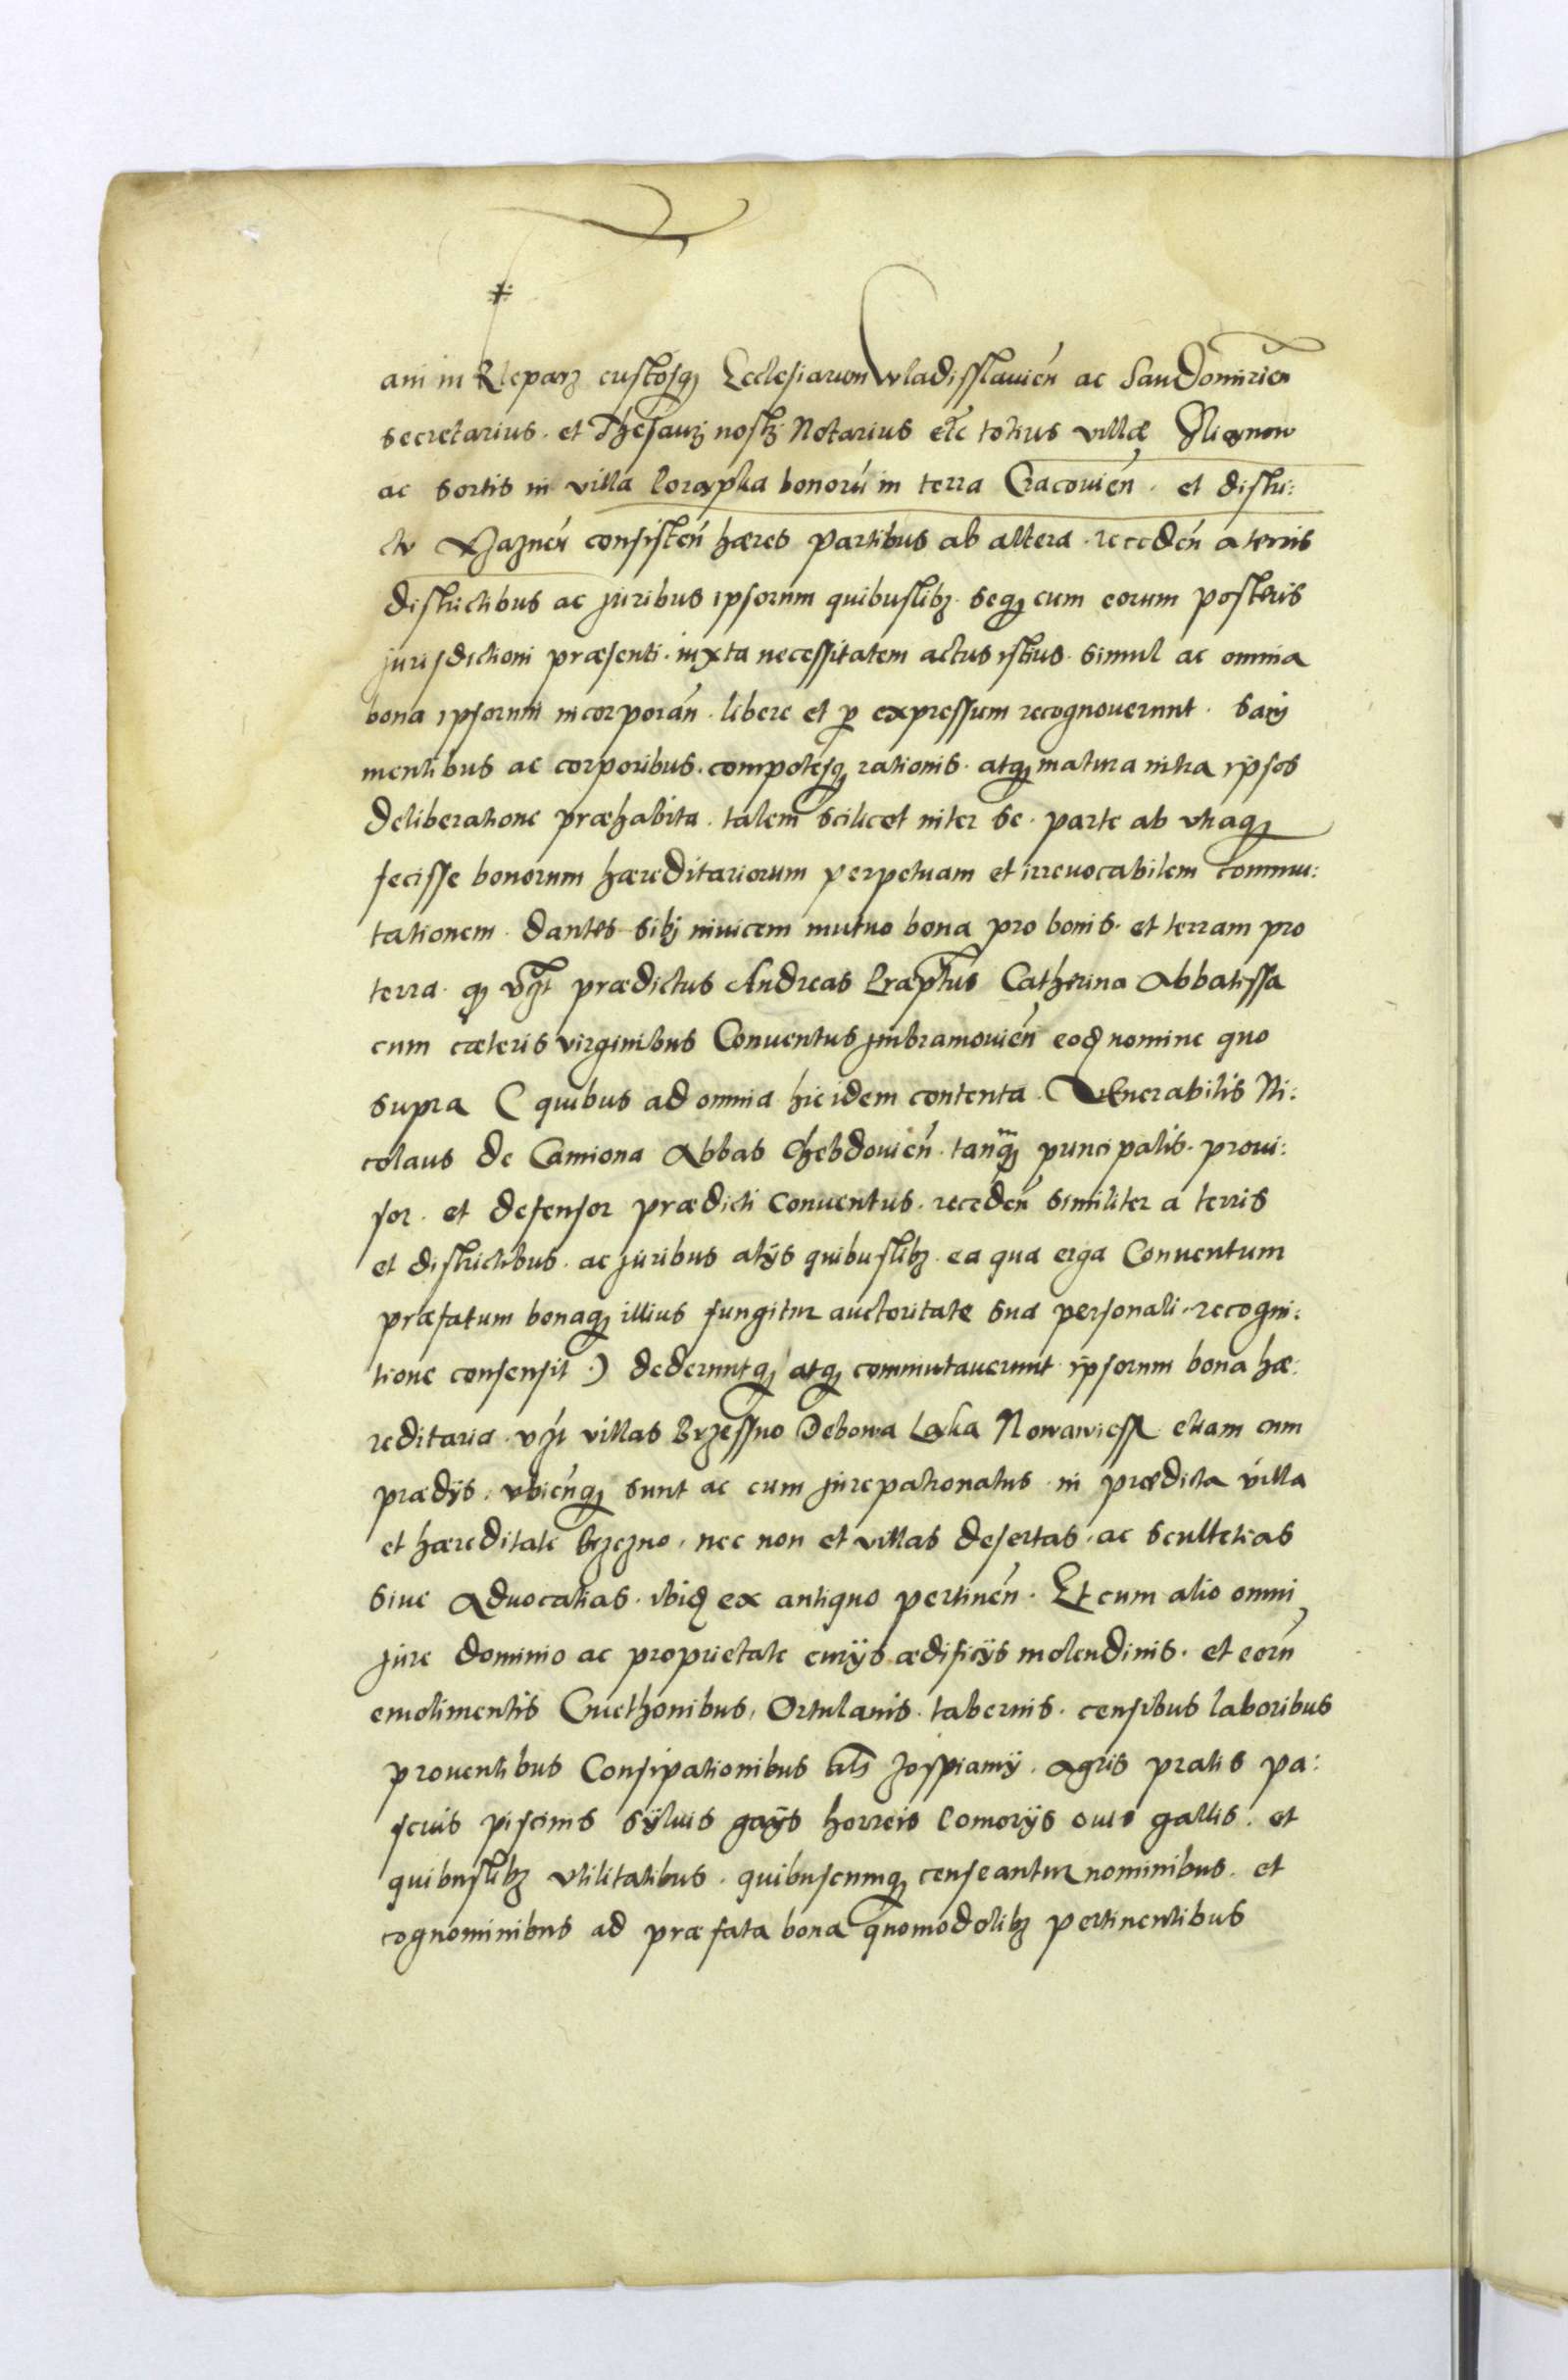 ani in Kleparz custosq; Ecclesiarum Wladisslauien̄ ac Sandomirien̄
secretarius · et Thesaurj nostrj Notarius etc̄ totius villæ
ac sortis in villa bonorū in terra Cracouien̄ · et distri:
ctu consisten̄ hæres partibus ab altera · receden̄ a terris
districtibus ac juribus ipsorum quibuslibz · seq; cum eorum posteris
jurisdictioni præsenti · iuxta necessitatem actus istius · simul ac omnia
bona ipsorum incorporan̄ · libere et p expressum recognouerunt · sani
mentibus ac corporibus · compotesq; rationis · atq; matura intra ipsos
deliberatione præhabita · talem scilicet inter se · parte ab vtraq;
fecisse bonorum hæreditariorum perpetuam et irreuocabilem commu:
tationem · dantes sibj inuicem mutuo bona pro bonis · et terram pro
terra · q; vz̄t prædictus Andreas Præptus Catherina Abbatissa
cum cæteris virginibus Conuentus jmbramouien̄ eoq nomine quo
supra ( quibus ad omnia hic idem contenta · Venerabilis Ni:
colaus de Camiona Abbas Chebdouien̄ · tanq;m principalis · proui:
sor · et defensor prædicti conuentus · receden̄ similiter a terris
et districtibus · ac juribus alÿs quibuslibz · ea qua erga Conuentum
præfatum bonaq; illius fungitur auctoritate sua personali · recogni:
tione consensit ·) dederuntq; atq; commutauerunt ipsorum bona hæ:
reditaria · vz̄t villas Brzessno Debowa Laka Nowawiess etiam cum
prædÿs · vbicūnq; sunt ac cum jurepatronatus · in prædicta villa
et hæreditate brzezno · nec non et villas desertas · ac scultetias
siue Aduocatias · ibiq ex antiquo pertinen̄ · Et cum alio omni
jure dominio ac proprietate curÿs ædificÿs molendinis · et eorū
emolimentis Cmethonibus, Ortulanis · tabernis · censibus laboribus
prouentibus Consipationibus als̄ zospiamÿ · agris pratis pa:
scuis piscinis sÿluis gaÿs horreis comorÿs ouis gallis · et
quibuslibz vtilitatibus · quibuscunq; censeantur nominibus · et
cognominibus ad præfata bona quomodolibz pertinentibus